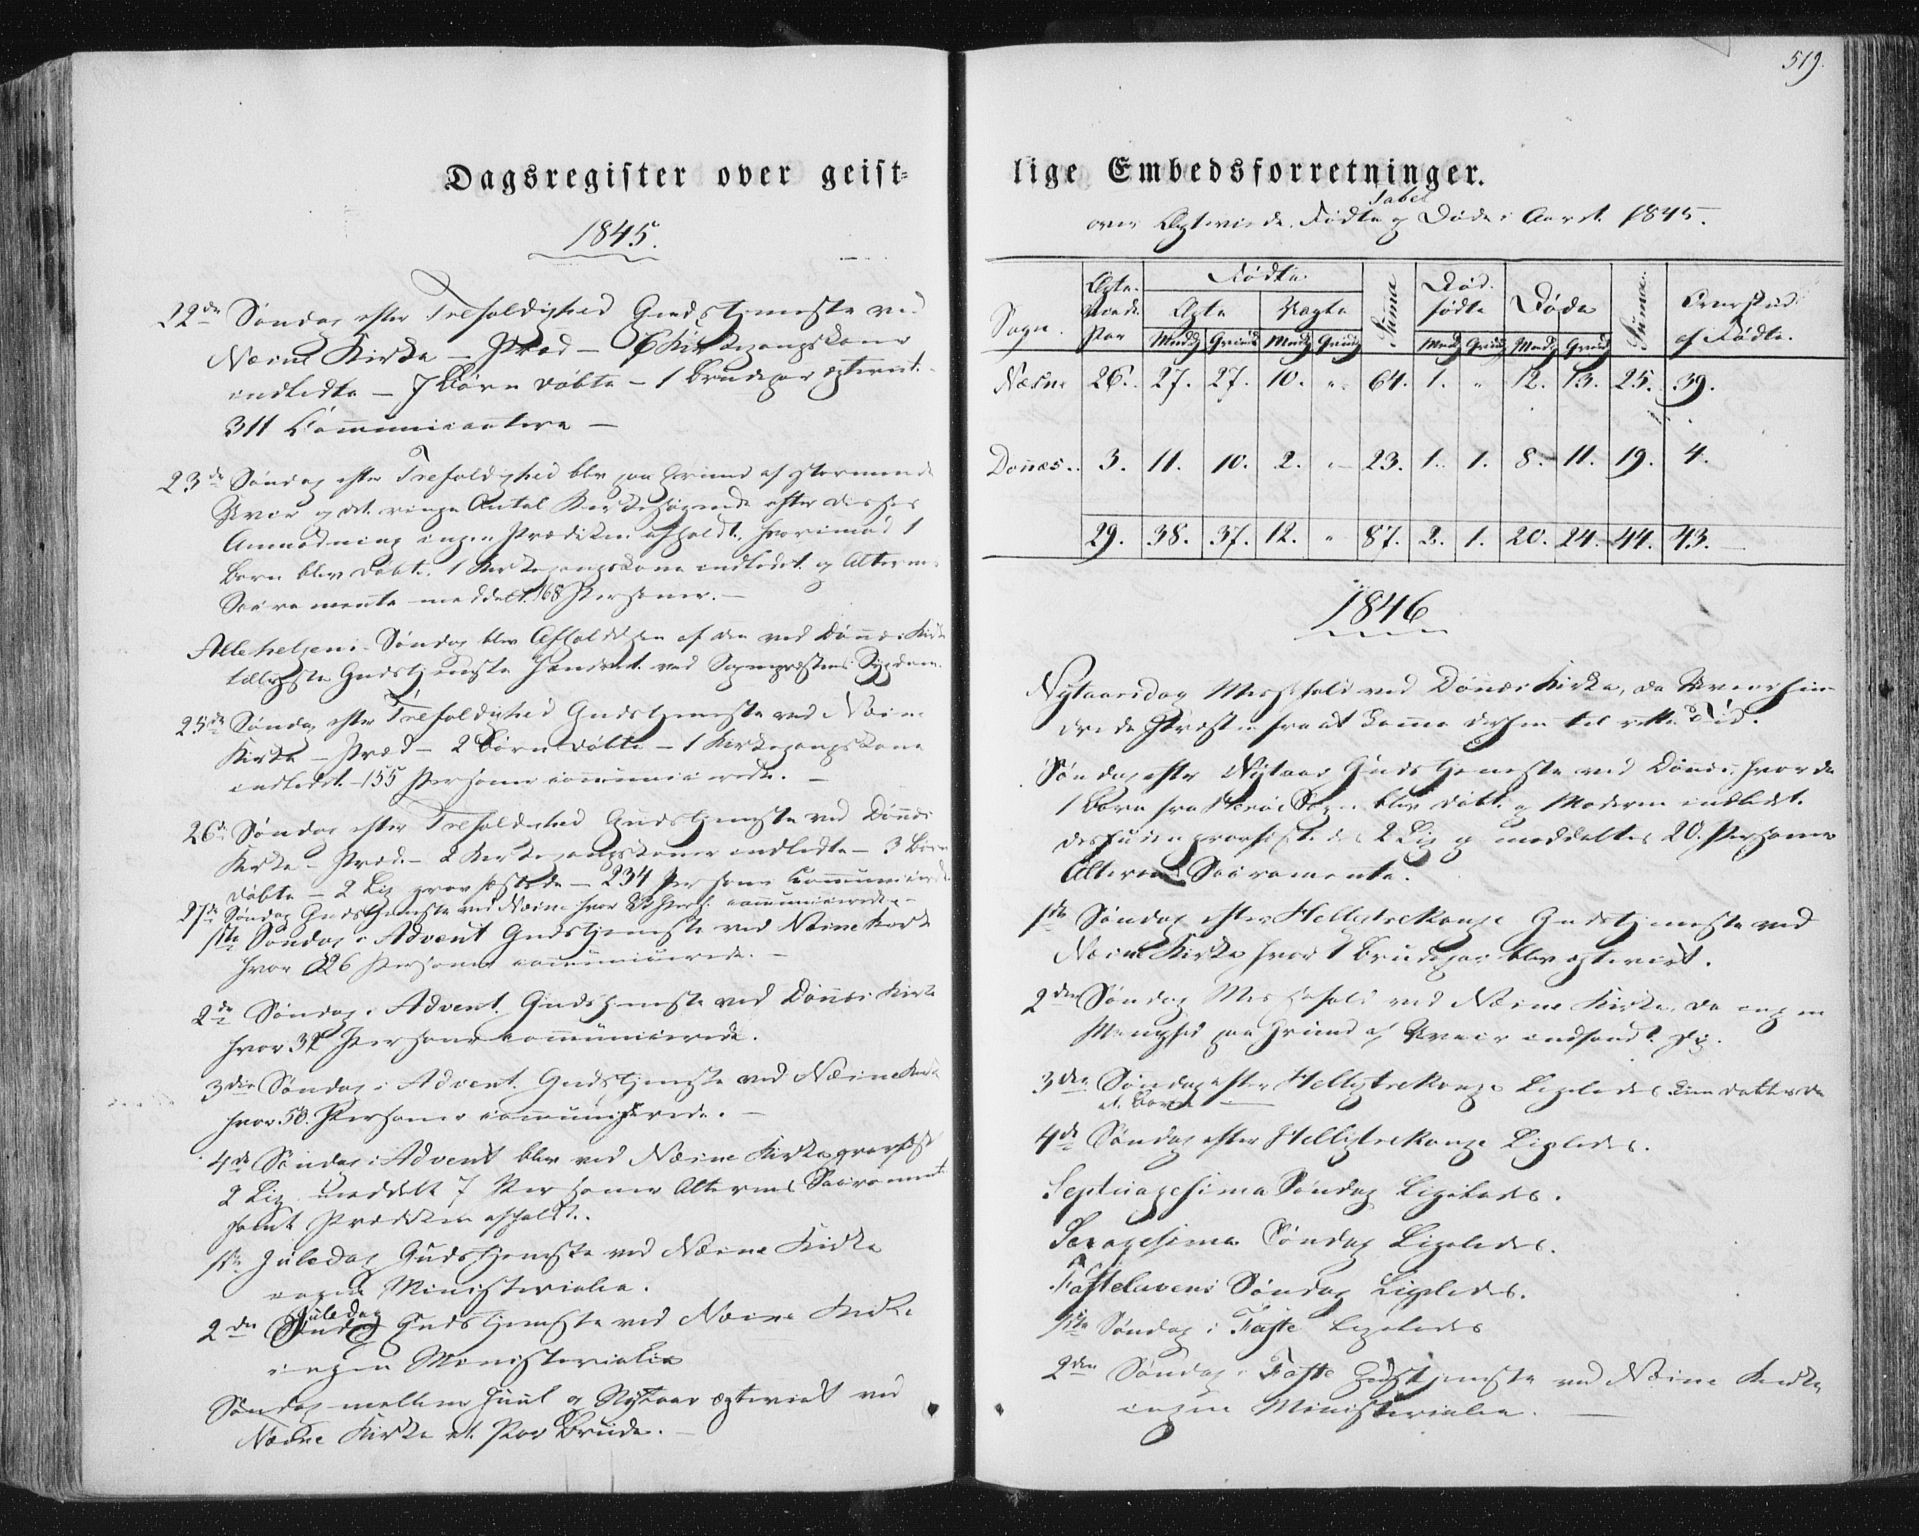 Dagsregister over geist-
1845.
22de Søndag efter Trefoldighed Gudstjeneste ved
Næsne Kirke – Præd – 6 Kirkegangskoner
indledte – 7 Børn døbte – 1 Brudepar ægteviet.
311 Communicantere –
23de Søndag efter Trefoldighed blev paa Grund af stormende
Veir og det ringe Antal Kirkesøgende efter disses
Anmodning ingen Prædiken afholdt, hvorimod 1
Barn blev døbt, 1 Kirkegangskone indledet og Alterens
Sacramente meddelt 168 Personer. –
Allehelgens Søndag blev Afholdelsen af den ved Dønnes Kirke
Gudstjeneste hindret ved Sognepræstens Sygdom.
25de Søndag efter Trefoldighed Gudstjeneste ved Næsne
Kirke – Præd – 2 Børn døbte – 1 Kirkegangskone
indledet – 155 Personer communicerede. –
26de Søndag efter Trefoldighed Gudstjeneste ved Dønnes
Kirke – Præd. – 2 Kirkegangskoner indledte – 3 Børn
døbte – 2 Lig gravfæstede – 234 Personer communicerede
27de Søndag Gudstjeneste ved Næsne hvor Pers. communicerede. –
1ste Søndag i Advent Gudstjeneste ved Næsne Kirke
hvor 26 Personer communicerede. –
2de Søndag i Advent Gudstjeneste ved Dønnes Kirke
hvor 32 Personer communicerede.
3die Søndag i Advent Gudstjeneste ved Næsne Kirke
hvor 50. Personer communicerede. –
4de Søndag i Advent blev ved Næsne Kirke gravfæst
2 Lig meddelt 7 Personer Alterens Sacrament
samt Prædiken afholdt.
1ste Juledag Gudstjeneste ved Næsne Kirke
ingen Ministerialia.
2den Juledag Gudstjeneste ved Næsne Kirke
ingen Ministerialia
Søndag mellem Juul og Nytaar ægteviet ved
Næsne Kirke et Par Brude. –
519.
lige Embedsforretninger.
Tabel
over Ægteviede, Fødte og Døde i Aaret 1845.
Sogn. Ægteviede Par Fødte Ægte Uægte Summa Dødfødte Døde Summa Overskud af Fødte.
Mandk Qvindk Mandk Qvindk Mandk Qvindk Mandk Qvindk
Næsne 26. 27. 27. 10. " 64. 1. " 12. 13. 25. 39.
Dønnes. 3. 11. 10. 2. " 23. 1. 1. 8. 11. 19. 4.
29. 38. 37. 12. " 87. 2. 1. 20. 24. 44. 43.
1846
Nytaarsdag Messefald ved Dønnes Kirke, da Veiret hin-
drede Præsten fra at komme dertil til rette Tid.
Søndag efter Nytaar Gudstjeneste ved Dønnes, hvor da
1 Barn fra Herø Sogn blev døbt og Moderen indledet.
desuden gravfæstedes 2 Lig og meddeltes 20. Personer
Alterens Sacramente.
1ste Søndag efter Helligtrekonge Gudstjeneste ved
Næsne Kirke hvor 1 Brudepar blev ægteviet.
2den Søndag Messefald ved Næsne Kirke, da ingen
Menighed paa Grund af Uveir indfandt sig.
3die Søndag efter Helligtrekonge Ligeledes kun døbtes da
et Barn
4de Søndag efter Helligtrekonge Ligeledes.
Septuagesima Søndag Ligeledes.
Sexagesima Søndag Ligeledes.
Fastelavens Søndag Ligeledes.
1ste Søndag i Faste Ligeledes
2den Søndag i Faste Gudstjeneste ved Næsne Kirke
ingen Ministerialia. –